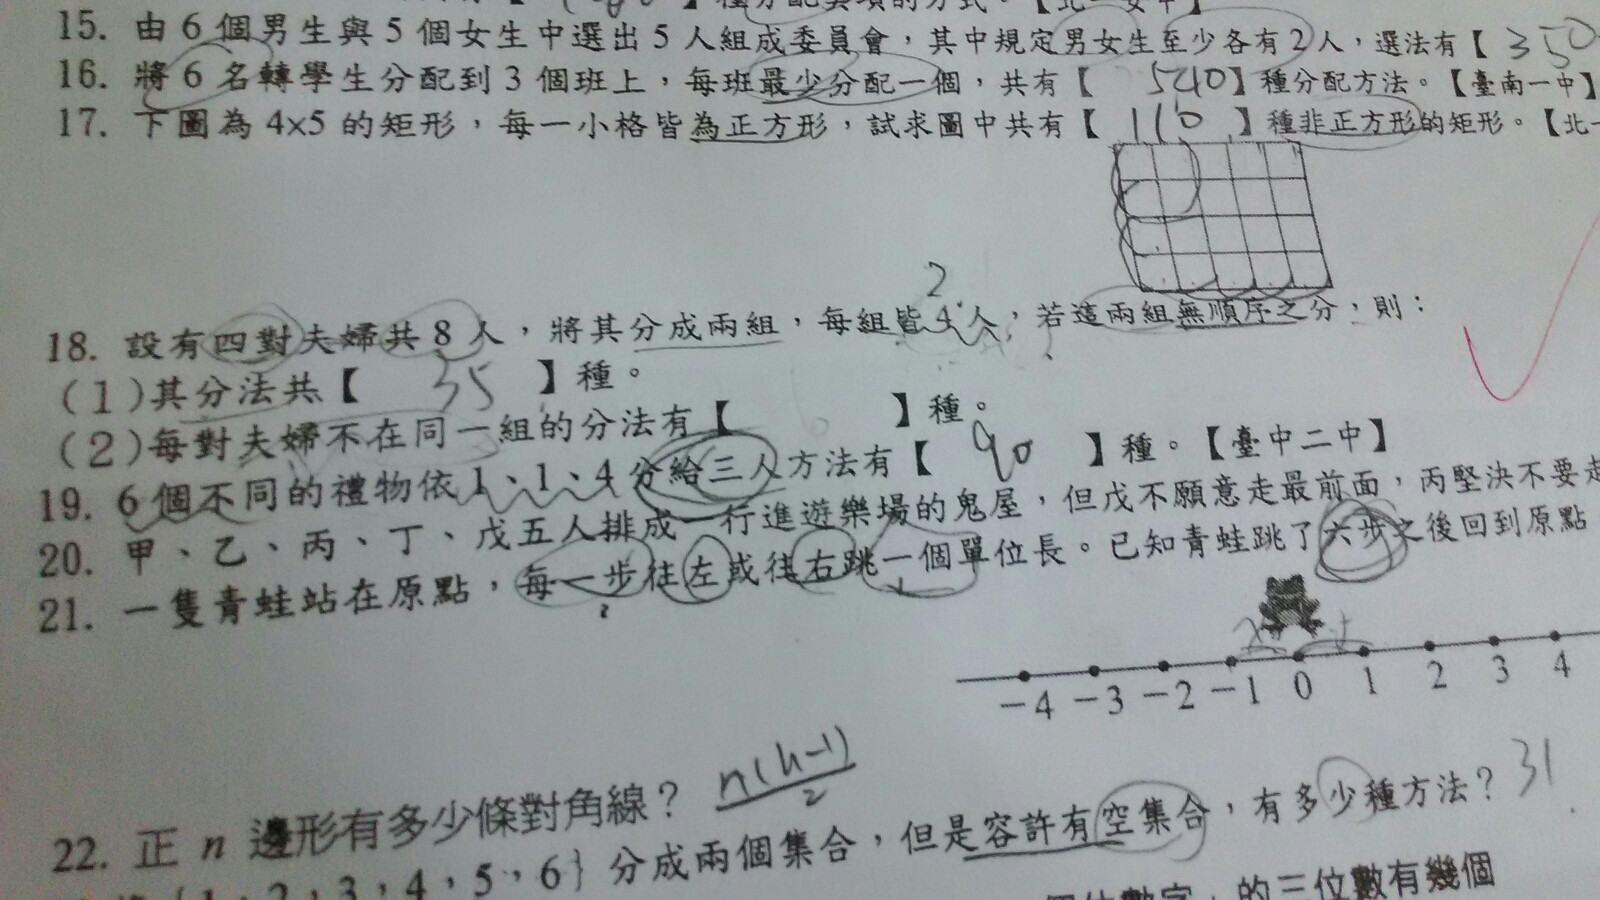 種分配獎項的方式。【北一女中】
15. 由 6 個男生與 5 個女生中選出 5 人組成委員會，其中規定男女生至少各有 2 人，選法有【 350
16. 將 6 名轉學生分配到 3 個班上，每班最少分配一個，共有【 540 】種分配方法。【臺南一中】
17. 下圖為 4×5 的矩形，每一小格皆為正方形，試求圖中共有【 110 】種非正方形的矩形。【北一
2
18. 設有四對夫婦共 8 人，將其分成兩組，每組皆 4 人，若這兩組無順序之分，則：
(1)其分法共【 35 】種。
(2)每對夫婦不在同一組的分法有【 】種。
19. 6 個不同的禮物依 1、1、4 分給三人方法有【 90 】種。【臺中二中】
20. 甲、乙、丙、丁、戊五人排成一行進遊樂場的鬼屋，但戊不願意走最前面，丙堅決不要走
21. 一隻青蛙站在原點，每一步往左或往右跳一個單位長。已知青蛙跳了六步之後回到原點
-4 -3 -2 -1 0 1 2 3 4
22. 正 n 邊形有多少條對角線？ n(n-1)/2
{1，2，3，4，5，6} 分成兩個集合，但是容許有空集合，有多少種方法？ 31
個位數字，的三位數有幾個